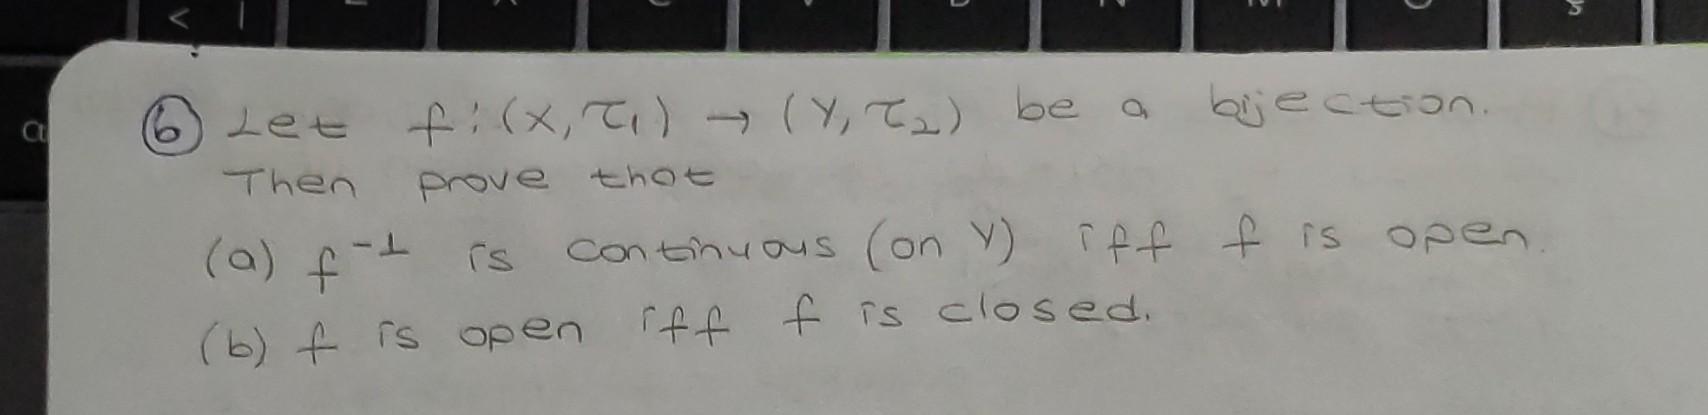 ⑥ Let f:(X, τ₁) → (Y, τ₂) be a bijection.
Then prove that
(a) f⁻¹ is continuous (on Y) iff f is open.
(b) f is open iff f is closed.